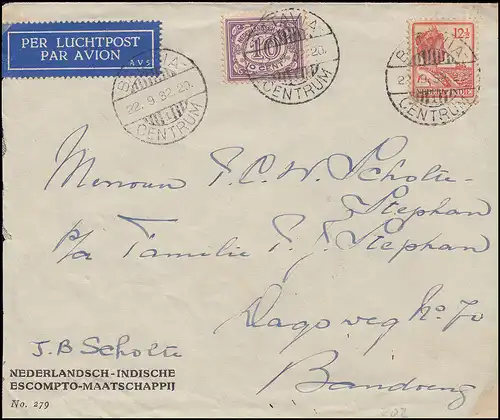 PER LUCHTPOST
PAR AVION
AVS
BATAVIA-
22.9.32.20.
CENTRUM
10
CENT
CENTRUM
12½
CENTRUM
Mevrouw P.C.W. Scholte-
Stephan
p/a Familie P.J. Stephan
Dagoweg No. 70
Bandoeng
J.B Scholte
NEDERLANDSCH-INDISCHE
ESCOMPTO-MAATSCHAPPIJ
No. 279